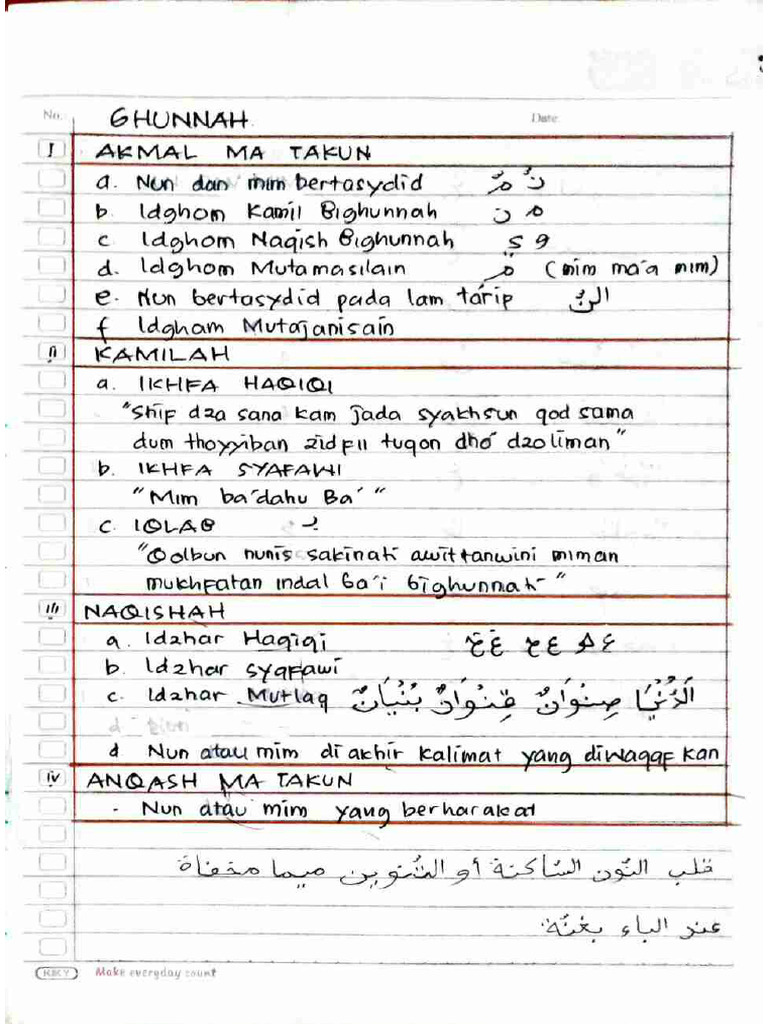 No.
GHUNNAH
Date
I AKMAL MA TAKUN
a. Nun dan mim bertasydid نّ مّ
b. Idghom Kamil Bighunnah م ن
c. Idghom Naqish Bighunnah و ي
d. Idghom Mutamasilain مّ (mim ma'a mim)
e. Nun bertasydid pada lam tarip النّ
f Idgham Mutajanisain
II KAMILAH
a. IKHFA HAQIQI
"Shif dza sana kam jada syakhsun qod sama
dum thoyyiban zidfii tuqon dho dzoliman"
b. IKHFA SYAFAWI
"Mim ba'dahu Ba'"
c. IQLAB ب
"Qolbun nunis sakinati awittanwini miman
mukhfatan indal ba'i bighunnah"
III NAQISHAH
a. Idzhar Haqiqi ء ه ع ح غ خ
b. Idzhar syafawi
c. Idzhar Mutlaq اَلدُّنْيَا صِنْوَانٌ قِنْوَانٌ بُنْيَانٌ
d Nun atau mim di akhir kalimat yang diwaqafkan
IV ANQASH MA TAKUN
- Nun atau mim yang berharakat
قلب النّون السّاكنة أو التّنوين ميما مخفاة
عند الباء بغنّة
KKY Make everyday count